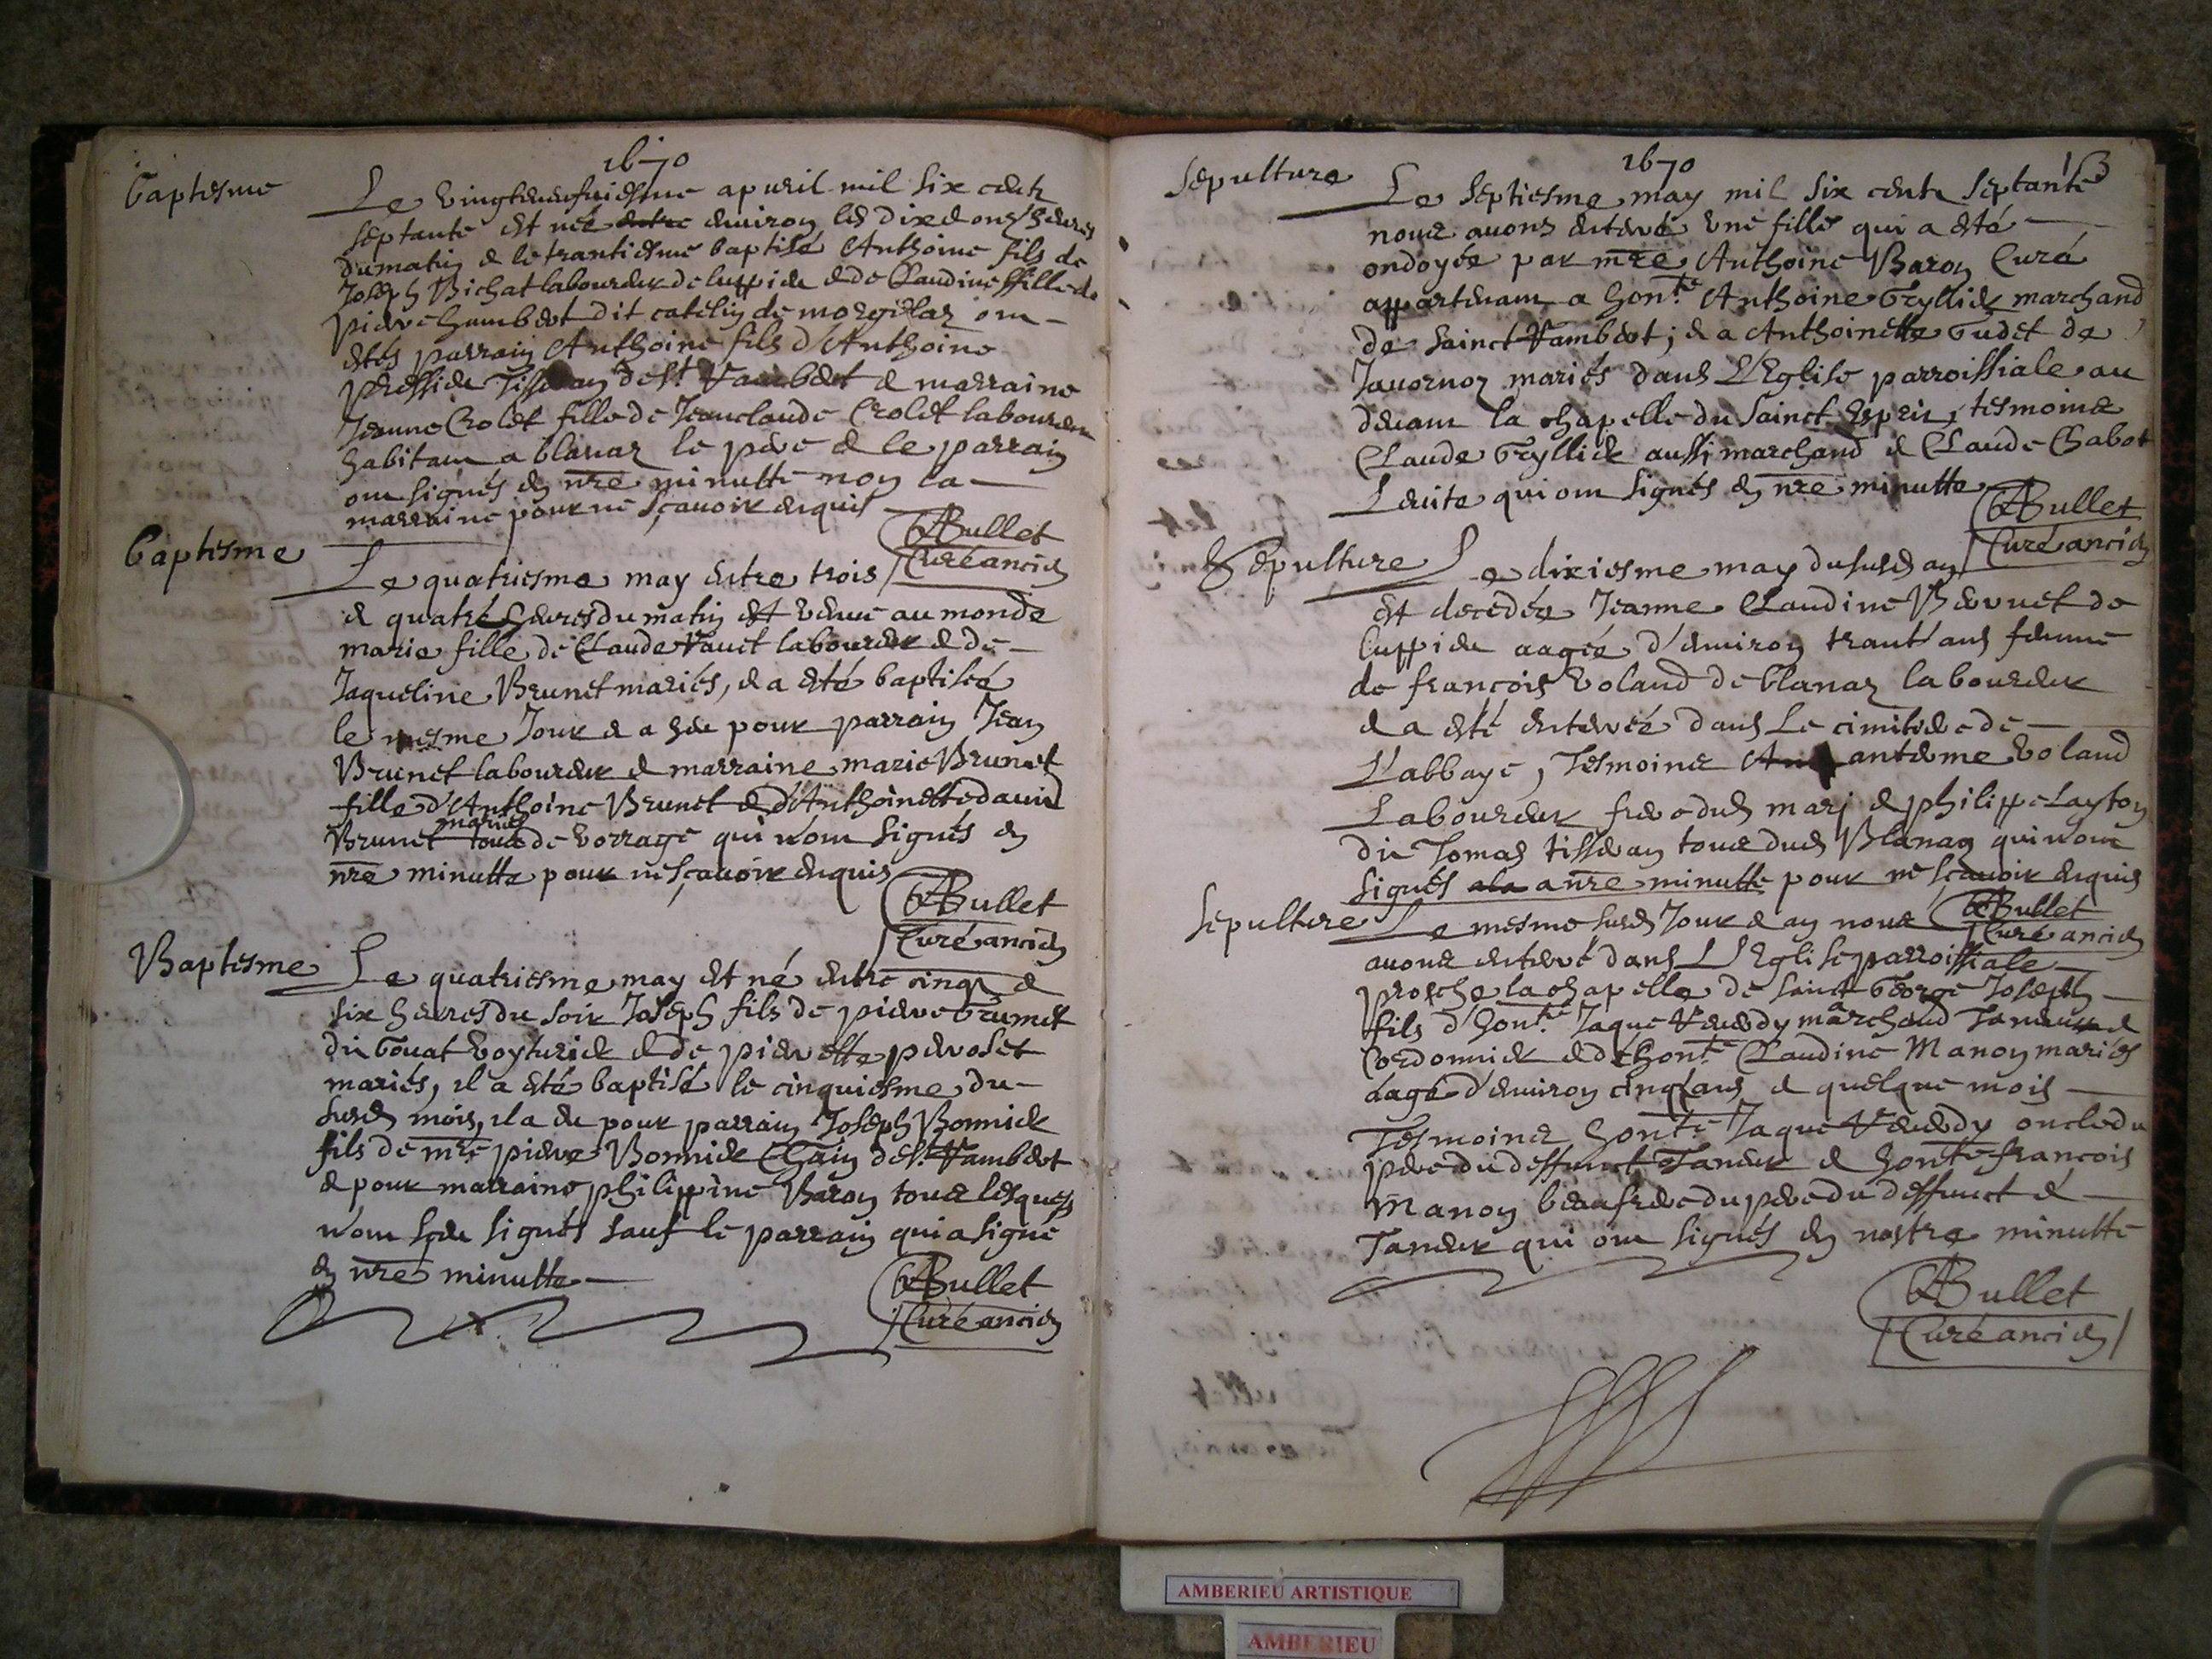 1670
Baptesme
Le vingtneufuiesme apuril mil six cents
septante est né entre enuiron les dix e onz' heures
du matin e le trantiesme baptisé Anthoine fils de
Joseph Bichat laboureur de Luppieu e de Claudine fille de
pierre humbert dit catelin de morgelas ont
estés parrain Anthoine fils d'Anthoine
Tisseran de St Rambert e marraine
Jeanne Crolet fille de Jeanclaude Crolet laboureur
habitant a blanaz le père e le parrain
ont signés en nre minutte non la
marraine pour ne sçauoir enquis
Bullet
Curé ancien
Baptesme
Le quatriesme may entre trois
e quatre heures du matin est venue au monde
marie fille de Claude Vauet laboureur e de
Jaqueline Brunet mariés, e a esté baptisée
le mesme Jour e a heu pour parrain Jean
Brunet laboureur e marraine marie Brunet
fille d'Anthoine Brunet e d'Anthoinette dauid
mariés
Brunet tous de vorrage qui n'ont signés en
nre minutte pour ne sçauoir enquis
Bullet
Curé ancien
Baptesme
Le quatriesme may est né entre cinq e
six heures du soir Joseph fils de pierre Grumet
dit Gouat voyturier e de pierrette peroset
mariés, il a esté baptisé le cinquiesme du
susd mois, il a eu pour parrain Joseph Bonnier
fils de mre pierre Bonnier Chain de St Rambert
e pour marraine philippine Baron tous lesquels
n'ont sceu signés sauf le parrain qui a signé
en nre minutte
Bullet
Curé ancien
1670
163
Sepulture
Le septiesme may mil six cents septante
nous auons enterré vne fille qui a esté
ondoyée par mre Anthoine Baron Curé
appartenant a hon.te Anthoine Geyllier marchand
de sainct Rambert; e a Anthoinette Gudet de
Jauornoz mariés dans L'Eglise parroissiale au
deuant la chapelle du Sainct Esprit, tesmoins
Claude Geyllier aussi marchand e Claude Chabot
qui ont signés en nre minutte
Bullet
Curé ancien
Sepulture
Le dixiesme may du susd an
est decedée Jeanne Claudine Beruet de
Luppieu aagée d'enuiron trant'ans femme
de françois voland de blanaz laboureur
e a esté enterrée dans Le cimitere de
L'abbaye, Tesmoins anterme voland
Laboureur frere dud mari e philippe Layton
dit Tomas tisseran tous dud Blanaz qui n'ont
signés ala a nre minutte pour ne sçauoir enquis
Bullet
Curé ancien
Sepulture
Le mesme susd Jour e an nous
auons enterré dans L'Eglise parroissiale
prosche la chapelle de sainct George Joseph
fils d'hon.te Jaque marchand Taneur e
Cordonnier e de hon.te Claudine Manon mariés
aagé d'enuiron cinq ans e quelque mois
Tesmoins hon.te Jaque oncle du
pere du deffunct Taneur e hon.te françois
Manon beaufrere du pere du deffunct e
Taneur qui ont signés en nostre minutte
Bullet
Curé ancien
AMBERIEU ARTISTIQUE
AMBERIEU